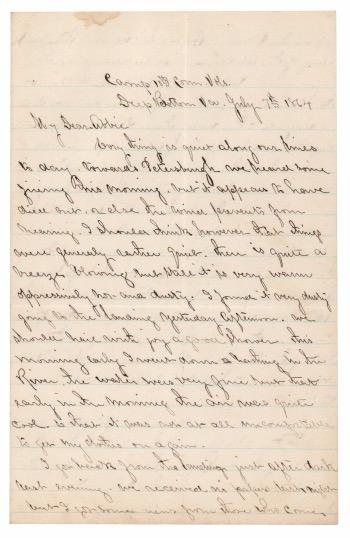 Camp 11th Conn. Vols.
Deep Bottom Va. July 7th 1864
My Dear Abbie
Every thing is quiet along our lines
to day. towards Petersburgh we heard some
firing this morning. but it appears to have
died out. or else the wind prevents from
hearing. I should think however that things
were generally rather quiet. there is quite a
breeze blowing but still it is very warm
oppressively hot and dusty. I found it very dusty
going to the landing yesterday afternoon. we
should here with joy a good shower. this
morning early I went down a bathing in the
River. the water was very fine but that
early in the morning the air was quite
cool. so that it was not at all uncomfortable
to get my clothes on again.
I got back from the landing just after dark
last evening. we received no papers last night
but I got some news from those who came.